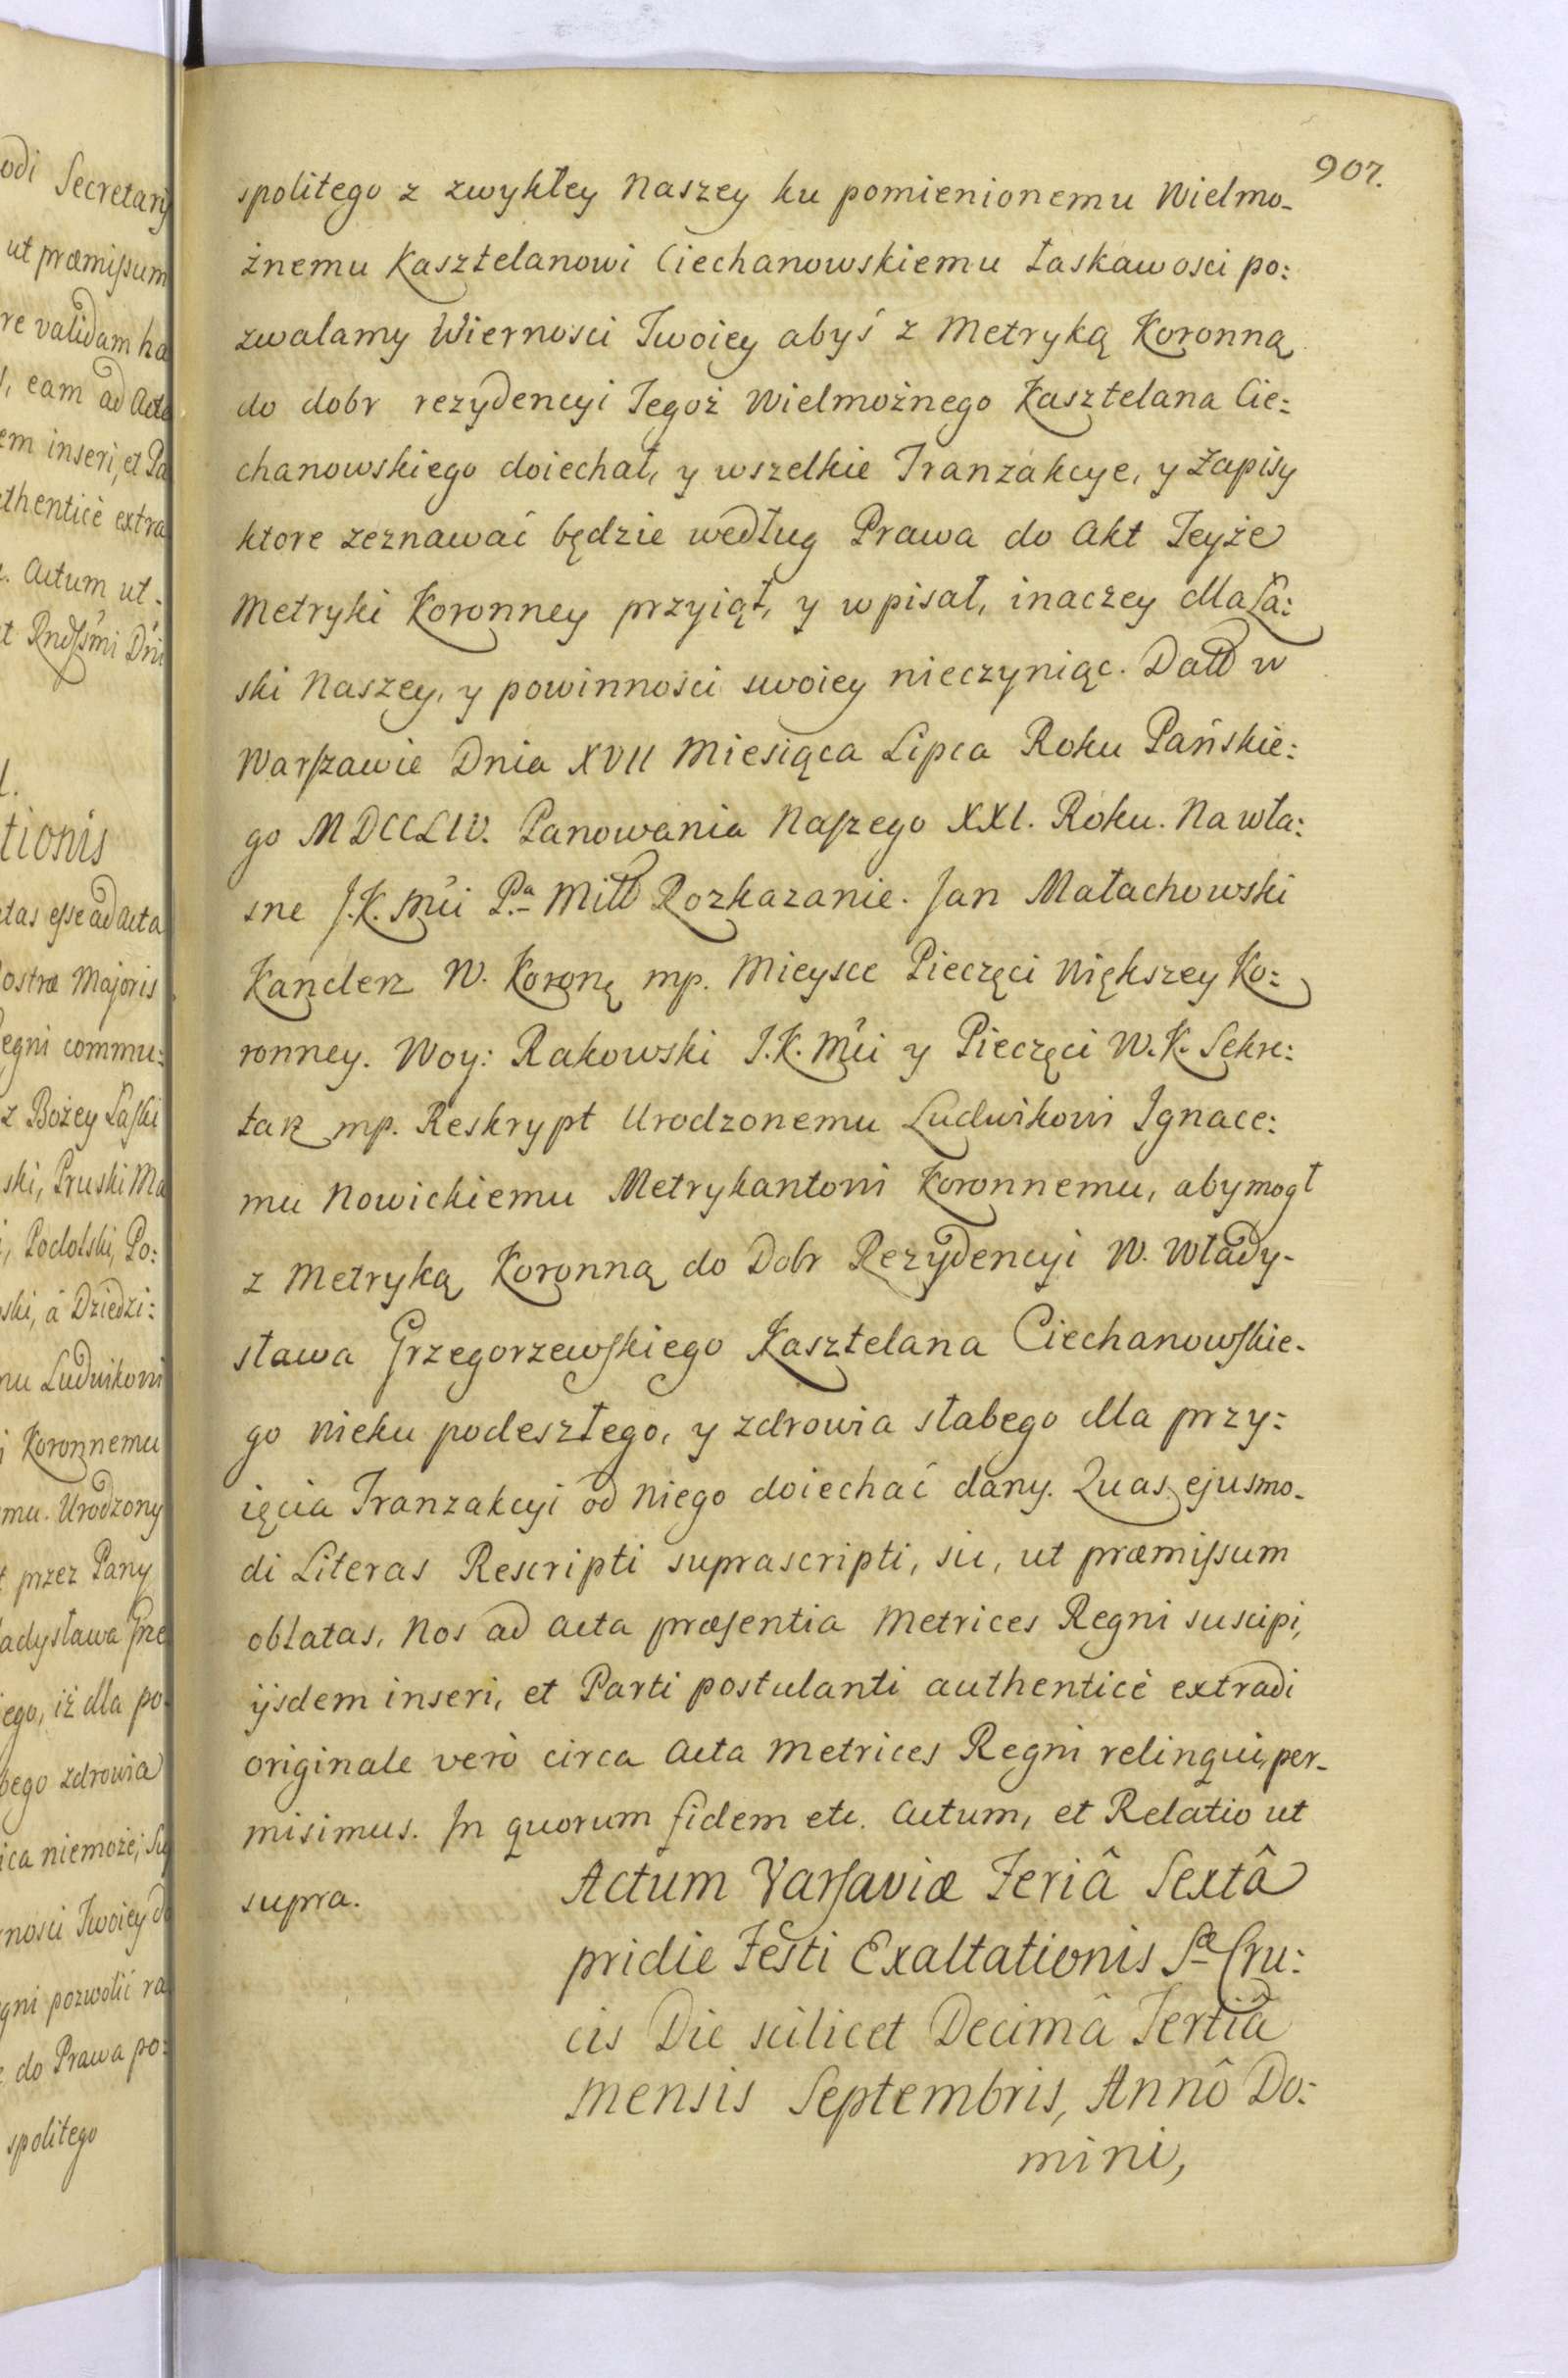 odi Secretarij
ut præmissum
re validam ha
eam ad Acta
em inseri, et Pa
thenticè extra
Actum ut
tionis
tas esse ad Acta
ostræ Majoris
egni commu:
z Bożey Łaski
ski, Pruski Ma
Podolski, Po:
ski, á Dziedzi:
nu Ludwikowi
i Koronnemu
mu. Urodzony
przez Pany
adysława Grze
ego, iż dla po
bego zdrowia
ica niemoże, Su
ności Twoiey d
gni pozwolić ra
do Prawa po:
spolitego
907.
spolitego z zwykłey Naszey ku pomienionemu Wielmo-
żnemu Kasztelanowi Ciechanowskiemu łaskawości po:
zwalamy Wierności Twoiey abyś z Metryką Koronną
do dobr rezydencyi Jegoż Wielmożnego Kasztelana Cie:
chanowskiego doiechał, y wszelkie Tranzakcye, y Zapisy
ktore zeznawać będzie według Prawa do Akt Teyże
Metryki Koronney przyiął, y wpisał, inaczey dla Ła:
ski Naszey, y powinności swoiey nieczyniąc. Datt w
Warszawie Dnia XVII Miesiąca Lipca Roku Pańskie:
go MDCCLIV. Panowania Naszego XXI. Roku. Na wła:
sne J.K. Mći Pa Mitt Rozkazanie. Jan Małachowski
Kanclerz W. Koronę mp. Mieysce Pieczęci Większey Ko:
ronney. Woy: Rakowski J.K. Mći y Pieczęci W.K. Sekre:
tarz mp. Reskrypt Urodzonemu Ludwikowi Ignace:
mu Nowickiemu Metrykantowi Koronnemu, aby mogł
z Metryką Koronną do Dobr Rezydencyi W. Włady-
sława Grzegorzewskiego Kasztelana Ciechanowskie-
go wieku podeszłego, y zdrowia słabego dla przy:
ięcia Tranzakcyi od niego doiechać dany. Quas ejusmo-
di Literas Rescripti suprascripti, sic, ut præmissum
oblatas, Nos ad Acta præsentia Metrices Regni suscipi,
ijsdem inseri, et Parti postulanti authenticè extradi
originale verò circa Acta Metrices Regni relinqui, per-
misimus. In quorum fidem etc. Actum, et Relatio ut
supra.
Actum Varsaviæ Feriâ Sextâ
pridie Festi Exaltationis Sæ Cru:
cis Die scilicet Decimâ Tertiâ
Mensis Septembris, Annô Do:
mini,